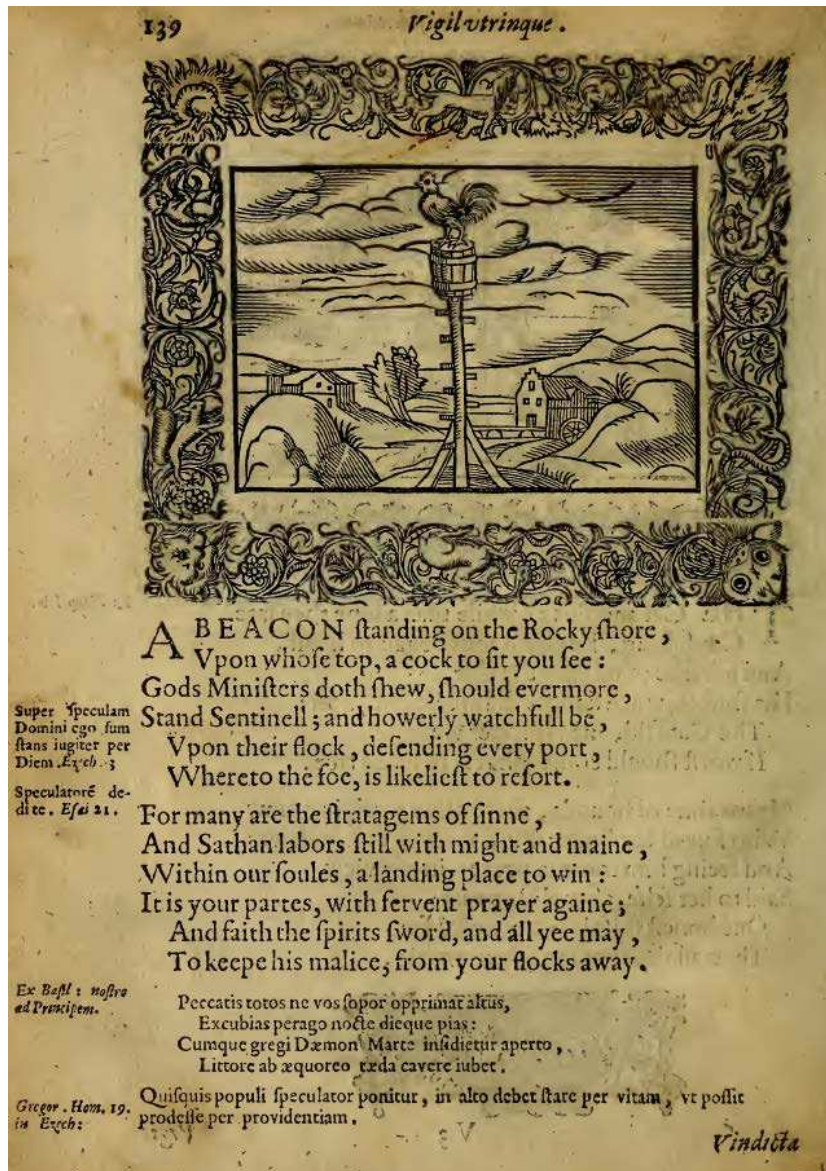 139
Vigil vtrinque.
A BEACON ſtanding on the Rocky ſhore,
Vpon whoſe top, a cock to ſit you ſee:
Gods Miniſters doth ſhew, ſhould evermore,
Stand Sentinell; and howerly watchfull be,
Vpon their flock, defending every port,
Whereto the foe, is likelieſt to reſort.
Super ſpeculam
Domini ego ſum
ſtans iugiter per
Diem. Ezech. 3
Speculatorē de-
dite. Eſai 21.
For many are the ſtratagems of ſinne,
And Sathan labors ſtill with might and maine,
Within our ſoules, a landing place to win:
It is your partes, with fervent prayer againe;
And faith the ſpirits ſword, and all yee may,
To keepe his malice, from your flocks away.
Ex Baſil: noſtro
ad Principem.
Peccatis totos ne vos ſopor opprimat altus,
Excubias perago nocte dieque pias:
Cumque gregi Dæmon Marte inſidietur aperto,
Littore ab æquoreo tæda cavere iubet.
Gregor. Hom. 19.
in Ezech:
Quiſquis populi ſpeculator ponitur, in alto debet ſtare per vitam, vt poſſit
prodeſſe per providentiam.
Vindicta